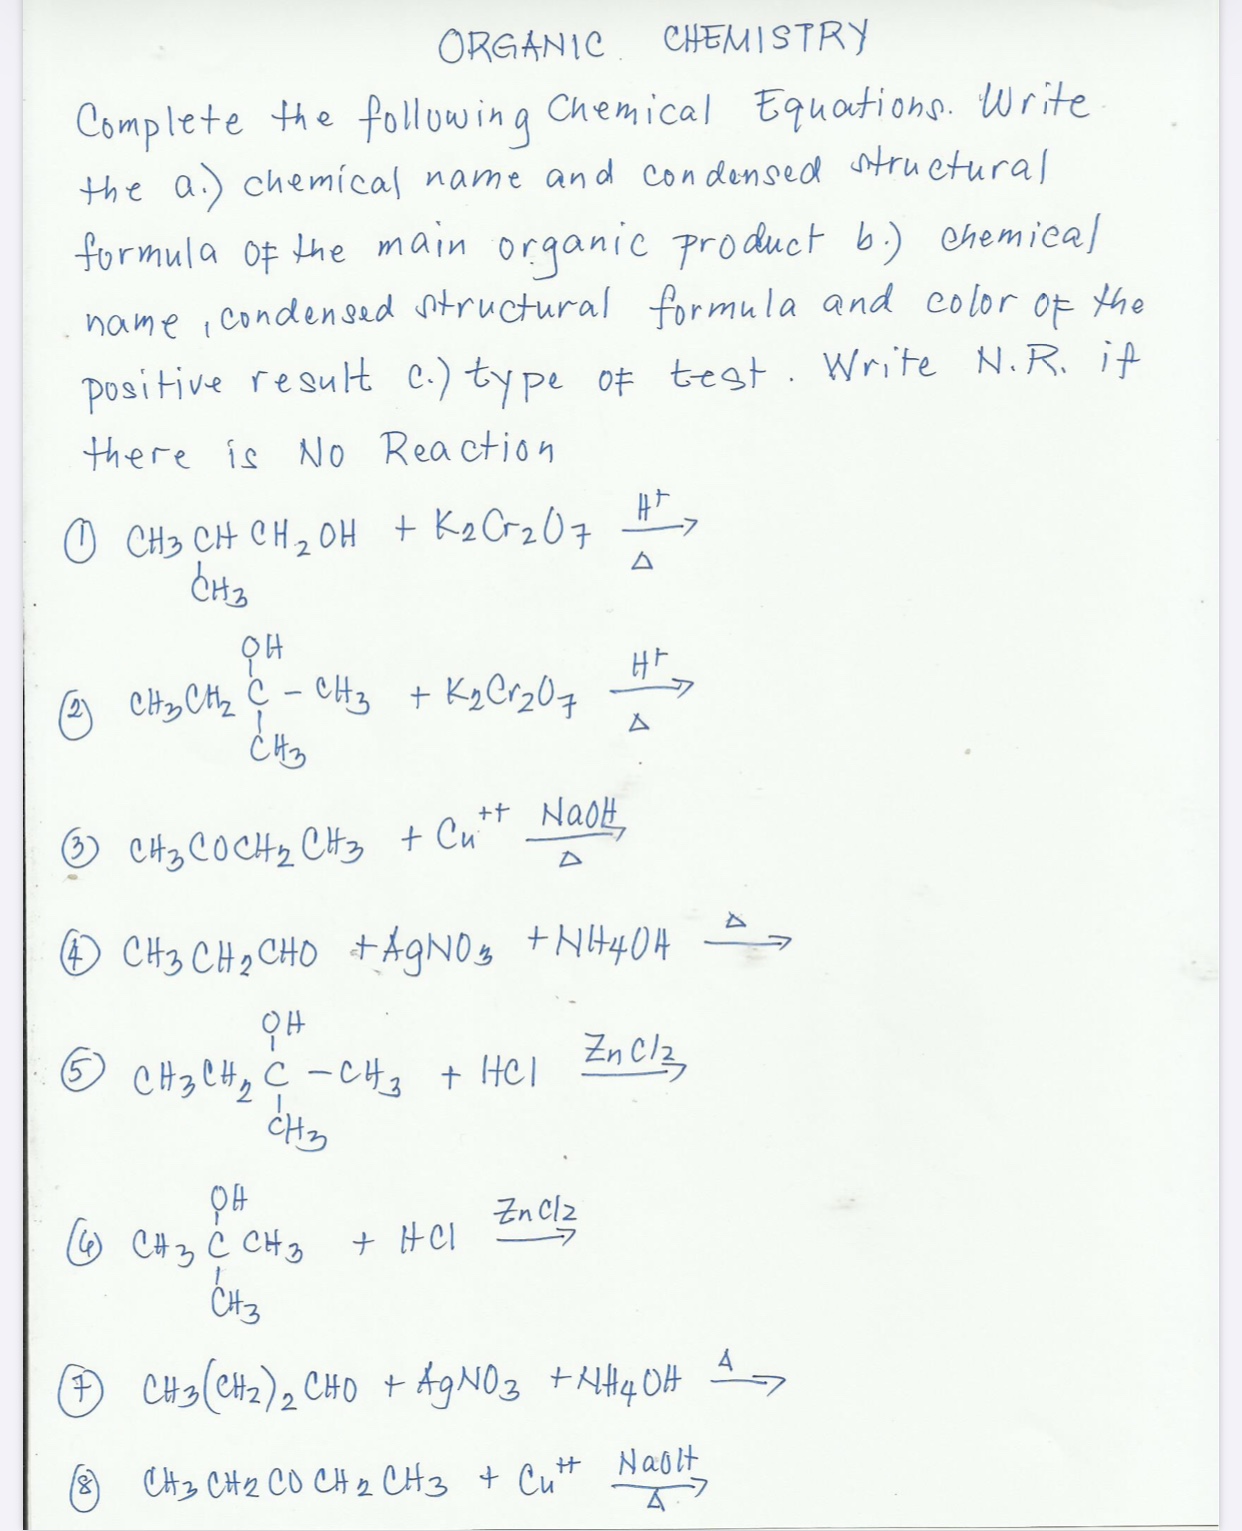 ORGANIC CHEMISTRY
Complete the following Chemical Equations. Write
the a.) chemical name and condensed structural
formula of the main organic product b.) chemical
name, condensed structural formula and color of the
positive result c.) type of test. Write N.R. if
there is No Reaction
① CH3 CH CH2 OH + K2Cr2O7 H+ → Δ
CH3
OH
② CH3CH2 C - CH3 + K2Cr2O7 H+ → Δ
CH3
③ CH3COCH2CH3 + Cu++ NaOH → Δ
④ CH3CH2CHO + AgNO3 + NH4OH Δ →
OH
⑤ CH3CH2 C - CH3 + HCl ZnCl2 →
CH3
OH
⑥ CH3 C CH3 + HCl ZnCl2 →
CH3
⑦ CH3(CH2)2CHO + AgNO3 + NH4OH Δ →
⑧ CH3CH2COCH2CH3 + Cu++ NaOH → Δ